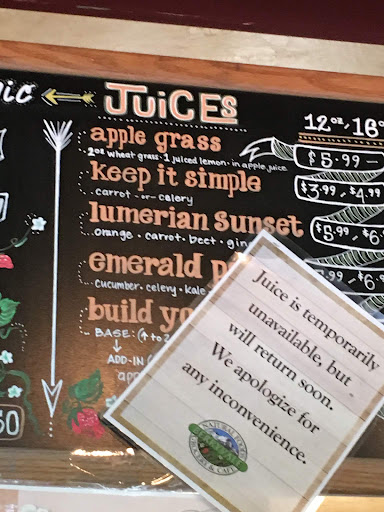 JUiCEs
12oz, 16
apple grass
2oz wheat grass · 1 juiced lemon · in apple juice
$5.99
keep it simple
carrot -or- celery
$3.99 · $4.99
lumerian sunset
orange · carrot · beet
$5.99
emerald
cucumber · celery · kale
build
BASE:
ADD-IN
Juice is temporarily
unavailable, but
will return soon.
We apologize for
any inconvenience.